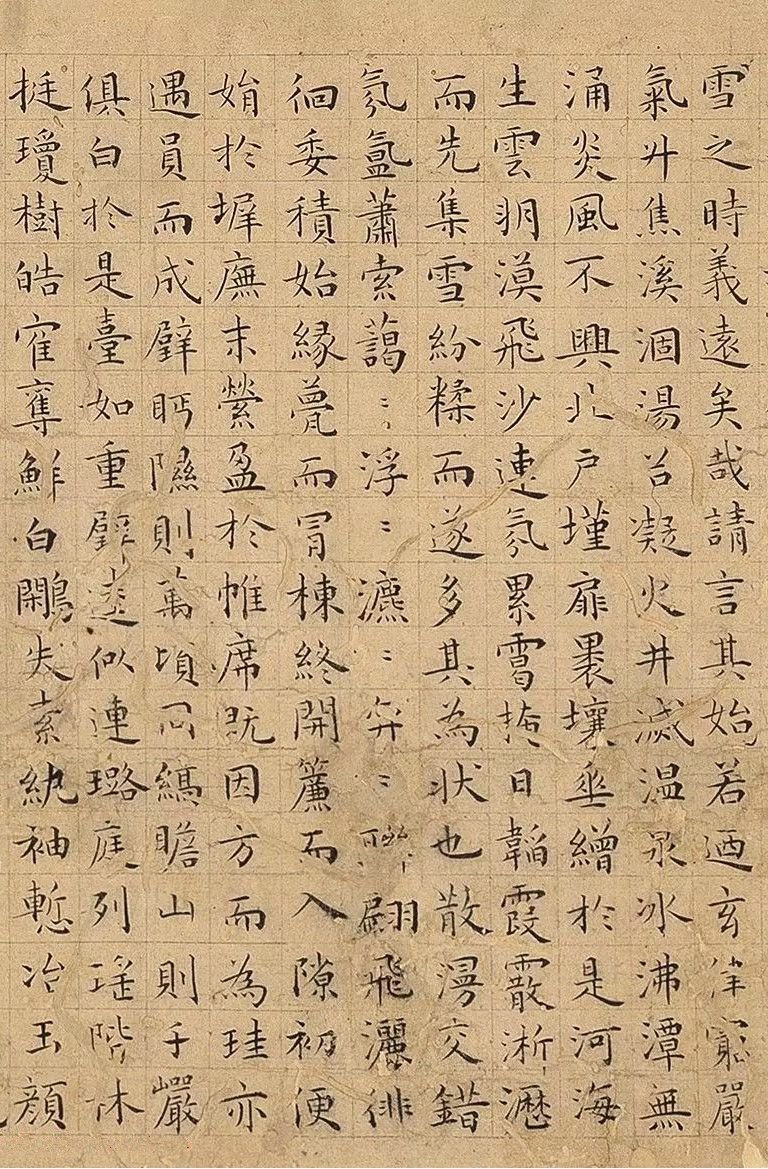 雪之時義遠矣哉請言其始若迺玄律窮嚴
氣升焦溪涸湯谷凝火井滅温泉冰沸潭無
涌炎風不興北户墐扉裹壤垂繒於是河海
生雲朔漠飛沙連氛累霫揜日韜霞霰淅瀝
而先集雪紛糅而遂多其為狀也散漫交錯
氛氲蕭索藹〻浮〻瀌〻弈〻聯翩飛灑徘
徊委積始緣甍而冒棟終開簾而入隙初便
娟於墀廡末縈盈於帷席既因方而為珪亦
遇員而成璧眄隰則萬頃同縞瞻山則千巖
俱白於是臺如重璧逵似連璐庭列瑤階林
挺瓊樹皓寉奪鮮白鷳失素紈袖慙冶玉顏